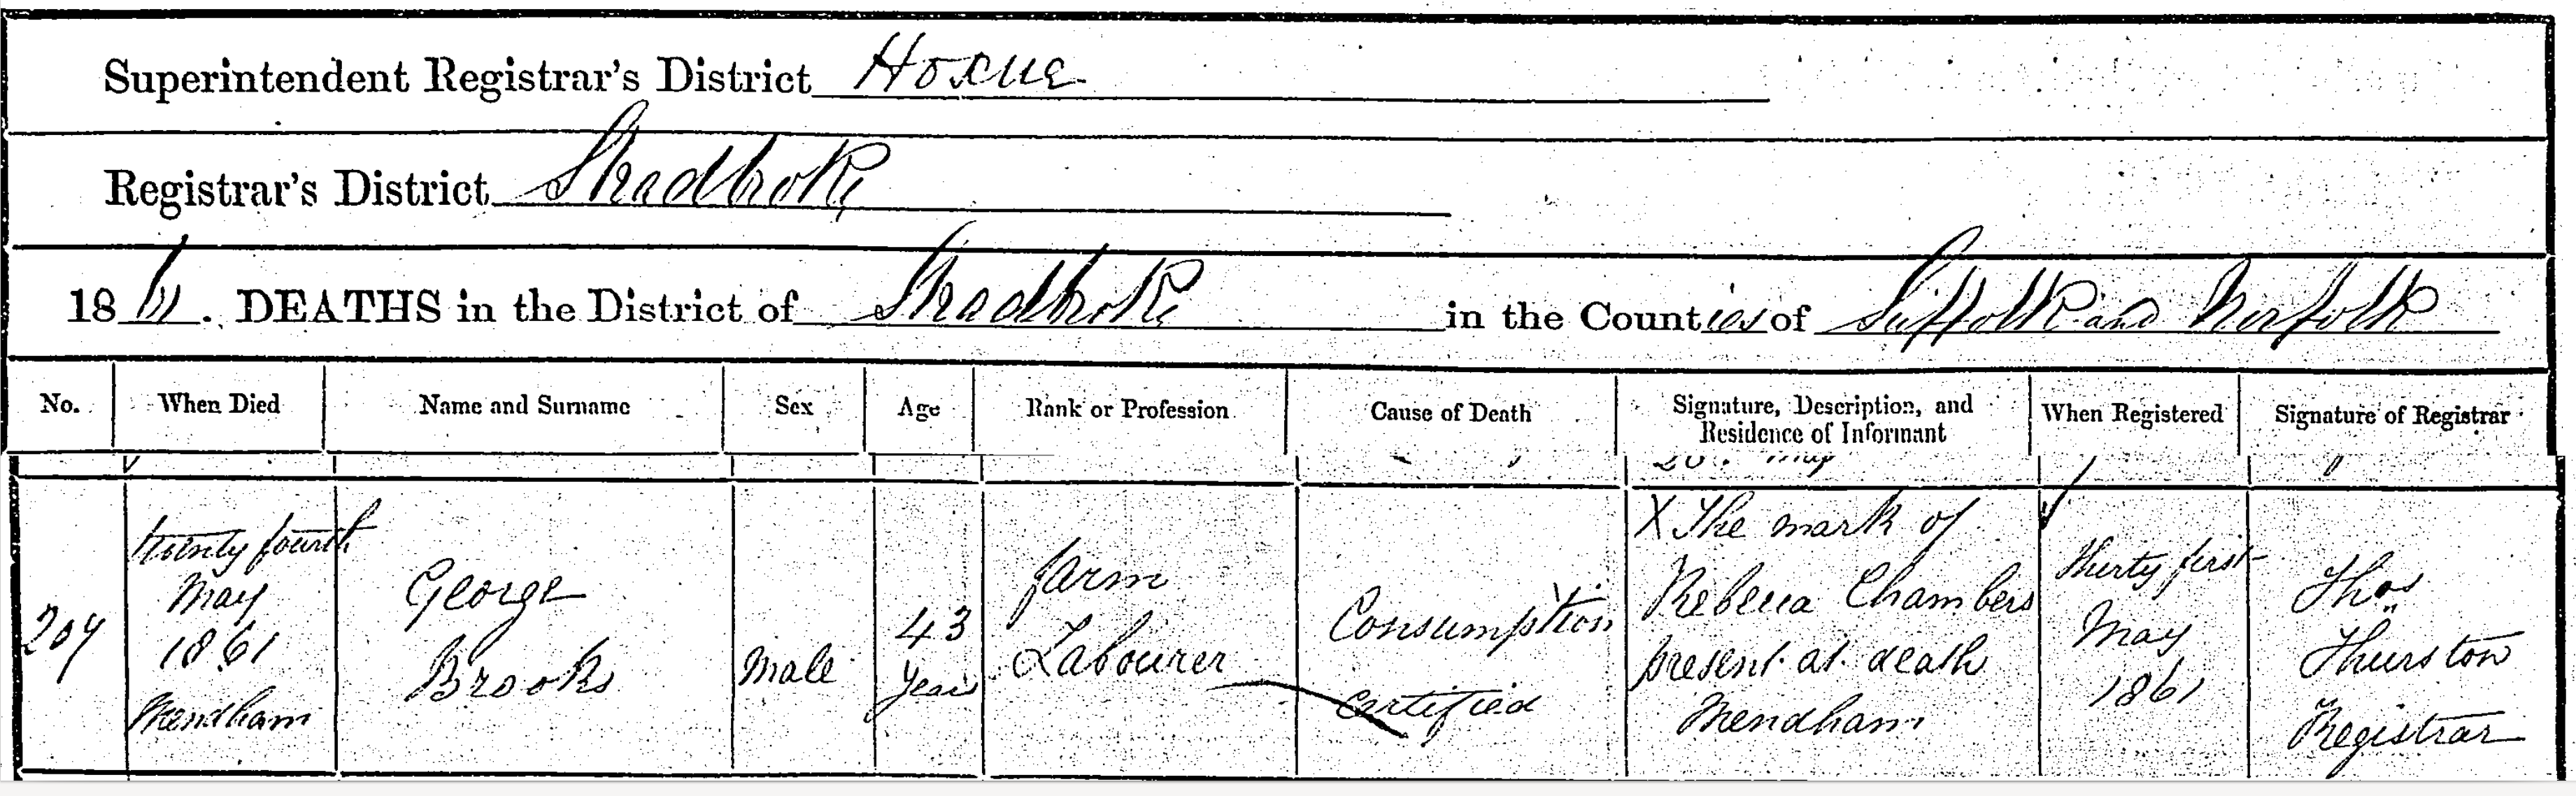 Superintendent Registrar's District Hoxne
Registrar's District Stradbroke
1861. DEATHS in the District of Stradbroke in the Counties of Suffolk and Norfolk
No. When Died Name and Surname Sex Age Rank or Profession Cause of Death Signature, Description, and Residence of Informant When Registered Signature of Registrar
207
twenty fourth
May
1861
Mendham
George
Brooks
Male
43
years
farm
Labourer
Consumption
Certified
X The mark of
Rebecca Chambers
present at death
Mendham
Thirty first
May
1861
Thos
Thurston
Registrar